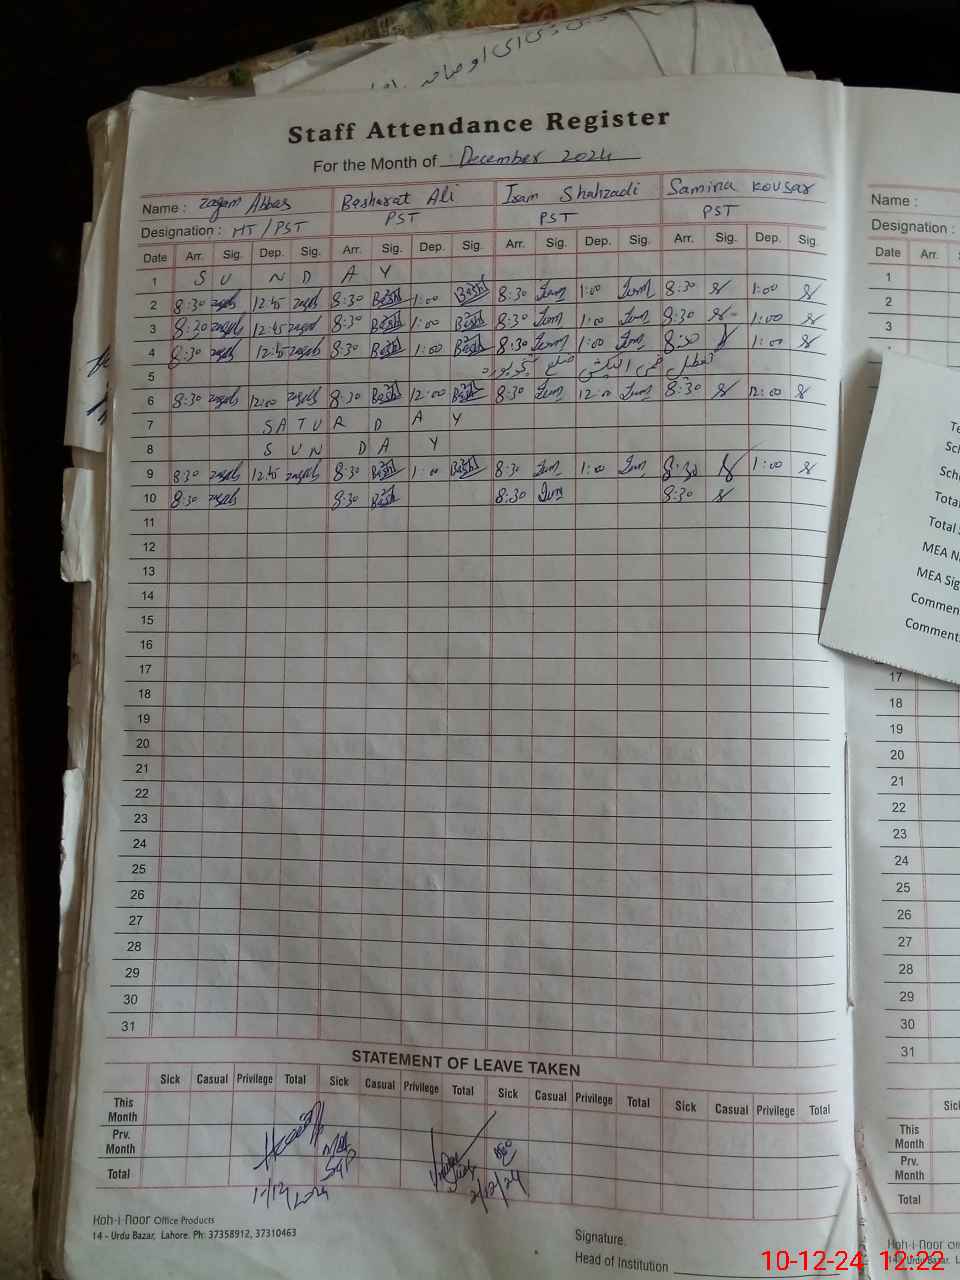 Staff Attendance Register
For the Month of December 2024
Name : Zagam Abbas Basharat Ali Iram Shahzadi Samina Kousar
Designation : HT/PST PST PST PST
Date Arr. Sig. Dep. Sig. Arr. Sig. Dep. Sig. Arr. Sig. Dep. Sig. Arr. Sig. Dep. Sig.
1 S U N D A Y
2 8:30 12:45 8:30 1:00 8:30 1:00 8:30 1:00
3 8:30 12:45 8:30 1:00 8:30 1:00 8:30 1:00
4 8:30 12:45 8:30 1:00 8:30 1:00 8:30 1:00
5
6 8:30 12:00 8:30 12:00 8:30 12:00 8:30 12:00
7 S A T U R D A Y
8 S U N D A Y
9 8:30 12:45 8:30 1:00 8:30 1:00 8:30 1:00
10 8:30 8:30 8:30 8:30
11
12
13
14
15
16
17
18
19
20
21
22
23
24
25
26
27
28
29
30
31
STATEMENT OF LEAVE TAKEN
Sick Casual Privilege Total Sick Casual Privilege Total Sick Casual Privilege Total Sick Casual Privilege Total
This Month
Prv. Month
Total
2/12/24
Koh-i-Noor Office Products
14 - Urdu Bazar, Lahore. Ph: 37358912, 37310463
Signature.
Head of Institution
Name :
Designation :
Date Arr.
1
2
3
Total
Total
MEA
MEA Sig
Commen
Comment
17
18
19
20
21
22
23
24
25
26
27
28
29
30
31
This Month
Prv. Month
Total
Koh-i-Noor
14 - Urdu Bazar,
10-12-24 12:22